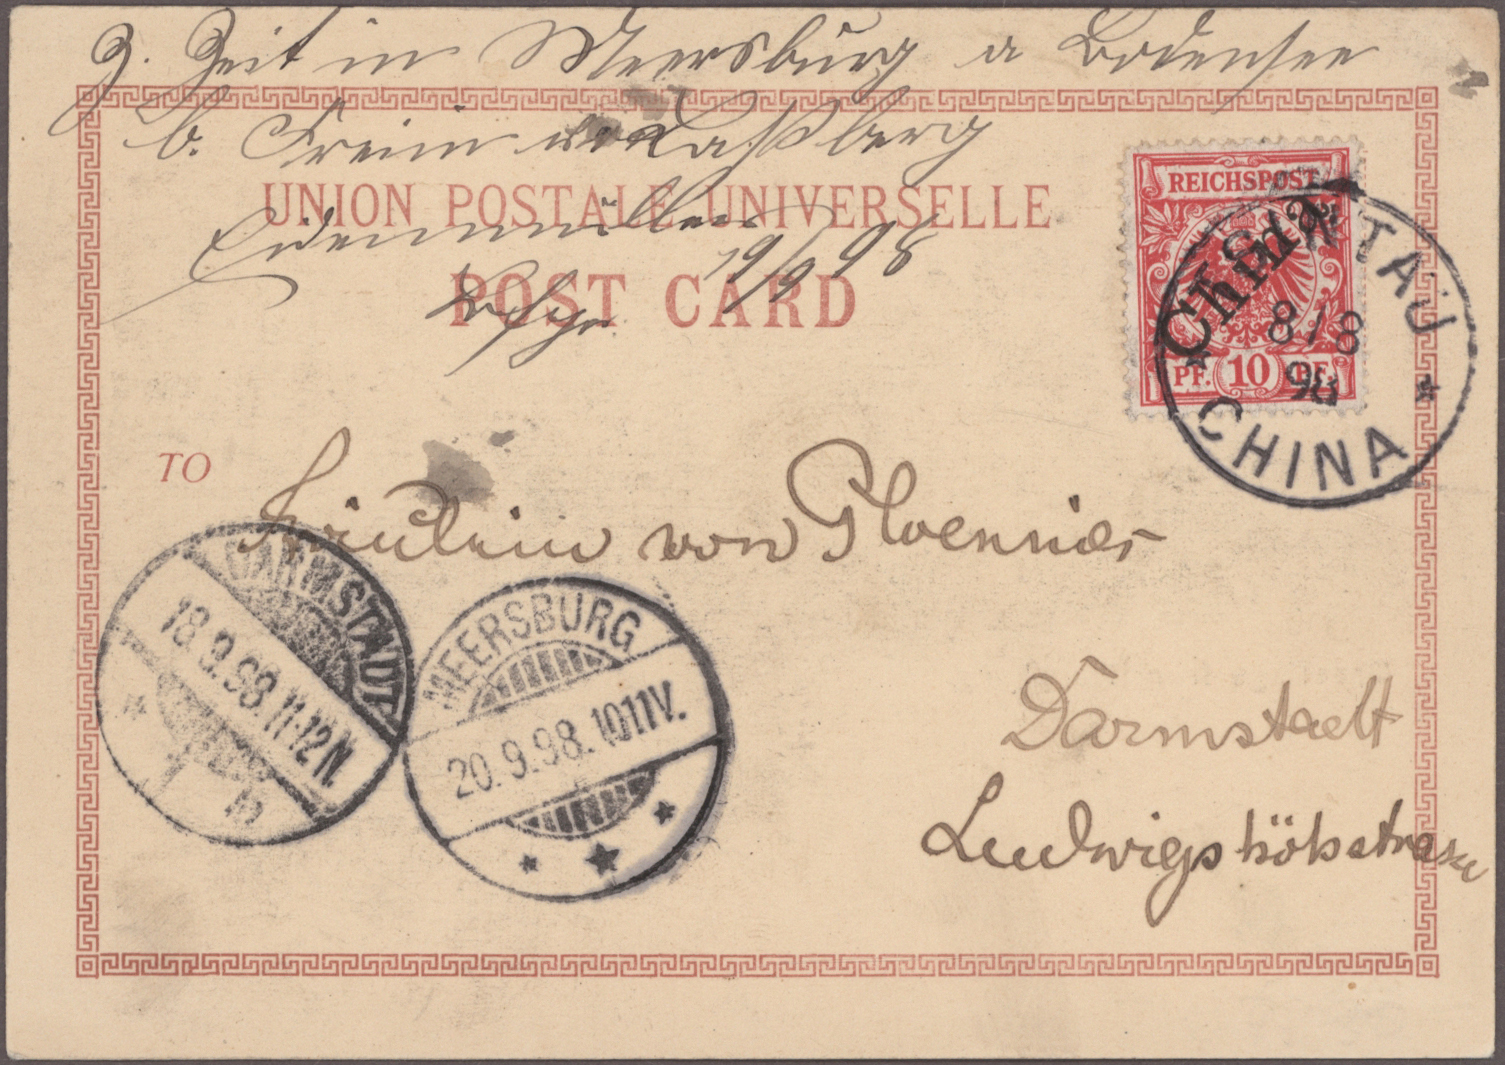 z. Zeit in Meersburg a Bodensee
b. Freiin von Laßberg
UNION POSTALE UNIVERSELLE
Eidenmüller
19/9 98
POST CARD
REICHSPOST
China
PF. 10 PF.
TSINTAU
8/8
98
CHINA
TO
Fräulein von Ploennies
DARMSTADT
18.9.98.11-12N.
MEERSBURG
20.9.98.1011V.
Darmstadt
Ludwigshöhstrasse